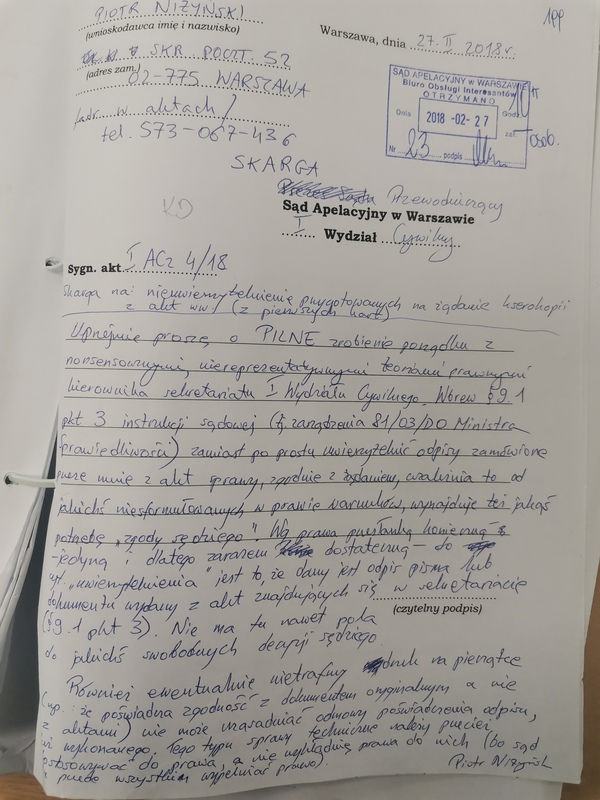 199
PIOTR NIŻYŃSKI
(wnioskodawca imię i nazwisko)
Warszawa, dnia 27.II 2018 r.
SKR. POCZT. 52
(adres zam.)
02-775 WARSZAWA
/adr. w aktach/
tel. 573-067-436
SĄD APELACYJNY w WARSZAWIE
Biuro Obsługi Interesantów
OTRZYMANO
Dnia 2018 -02- 27 Godz.
zał. osob.
Nr 23 podpis
SKARGA
Przewodniczący
Sąd Apelacyjny w Warszawie
I Wydział Cywilny
Sygn. akt I ACz 4/18
Skarga na: nieuwierzytelnienie przygotowanych na żądanie kserokopii
z akt ww. (z pierwszych kart)
Uprzejmie proszę o PILNE zrobienie porządku z
nonsensownymi, niereprezentatywnymi teoriami prawnymi
kierownika sekretariatu I Wydziału Cywilnego. Wbrew § 9.1
pkt 3 instrukcji sądowej (tj. zarządzenia 81/03/DO Ministra
Sprawiedliwości) zamiast po prostu uwierzytelnić odpisy zamówione
przeze mnie z akt sprawy, zgodnie z żądaniem, uzależnia to od
jakichś niesformułowanych w prawie warunków, wynajduje też jakąś
potrzebę "zgody sędziego". Wg prawa przesłanką konieczną
- jedyną i dlatego zarazem dostateczną - do
"uwierzytelnienia" jest to, że dany jest odpis pisma lub
dokumentu wydany z akt znajdujących się w sekretariacie
(czytelny podpis)
(§ 9.1 pkt 3). Nie ma tu nawet pola
do jakichś swobodnych decyzji sędziego.
Również ewentualnie nietrafny druk na pieczątce
(np.: że poświadcza zgodność z dokumentem oryginalnym a nie
z aktami) nie może uzasadniać odmowy poświadczenia odpisu,
już wykonanego. Tego typu sprawy techniczne należy przecież
"dostosowywać" do prawa, a nie wykładnię prawa do nich (bo sąd
przede wszystkim wypełniać prawo).
Piotr Niżyński